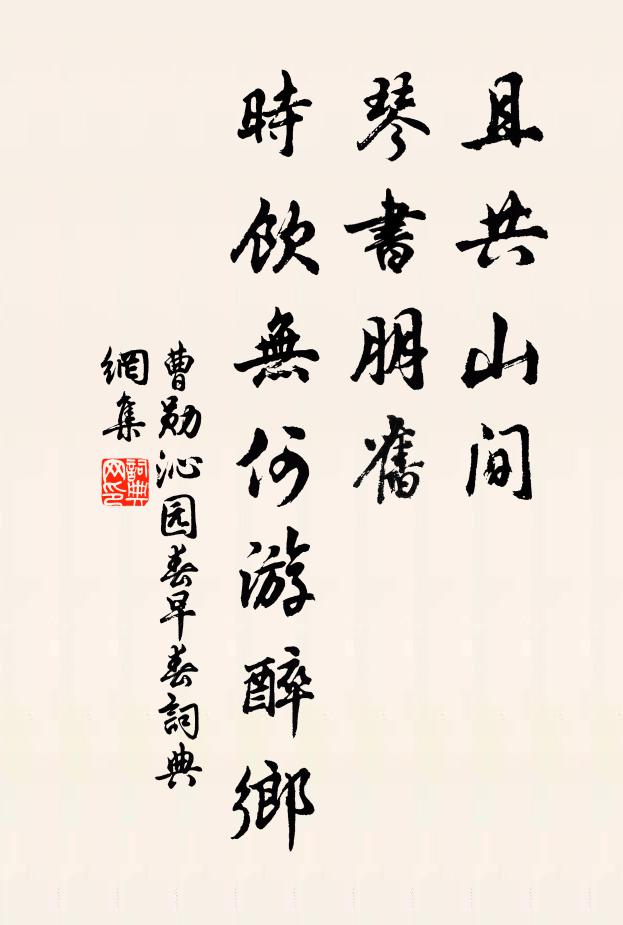 且共山间
琴書朋舊
時飲無何游醉鄉
曹勋沁园春早春詞典
網集
詞典
网印